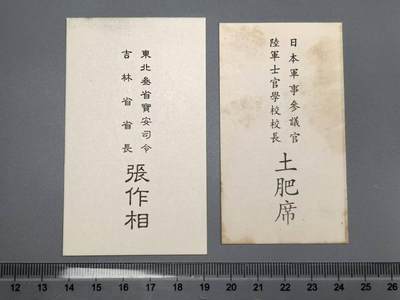 東北叁省寶安司令
吉林省省長
張作相
日本軍事參議官
陸軍士官學校校長
土肥席
12 13 14 15 16 17 18 19 20 21 22 23 24 25 26